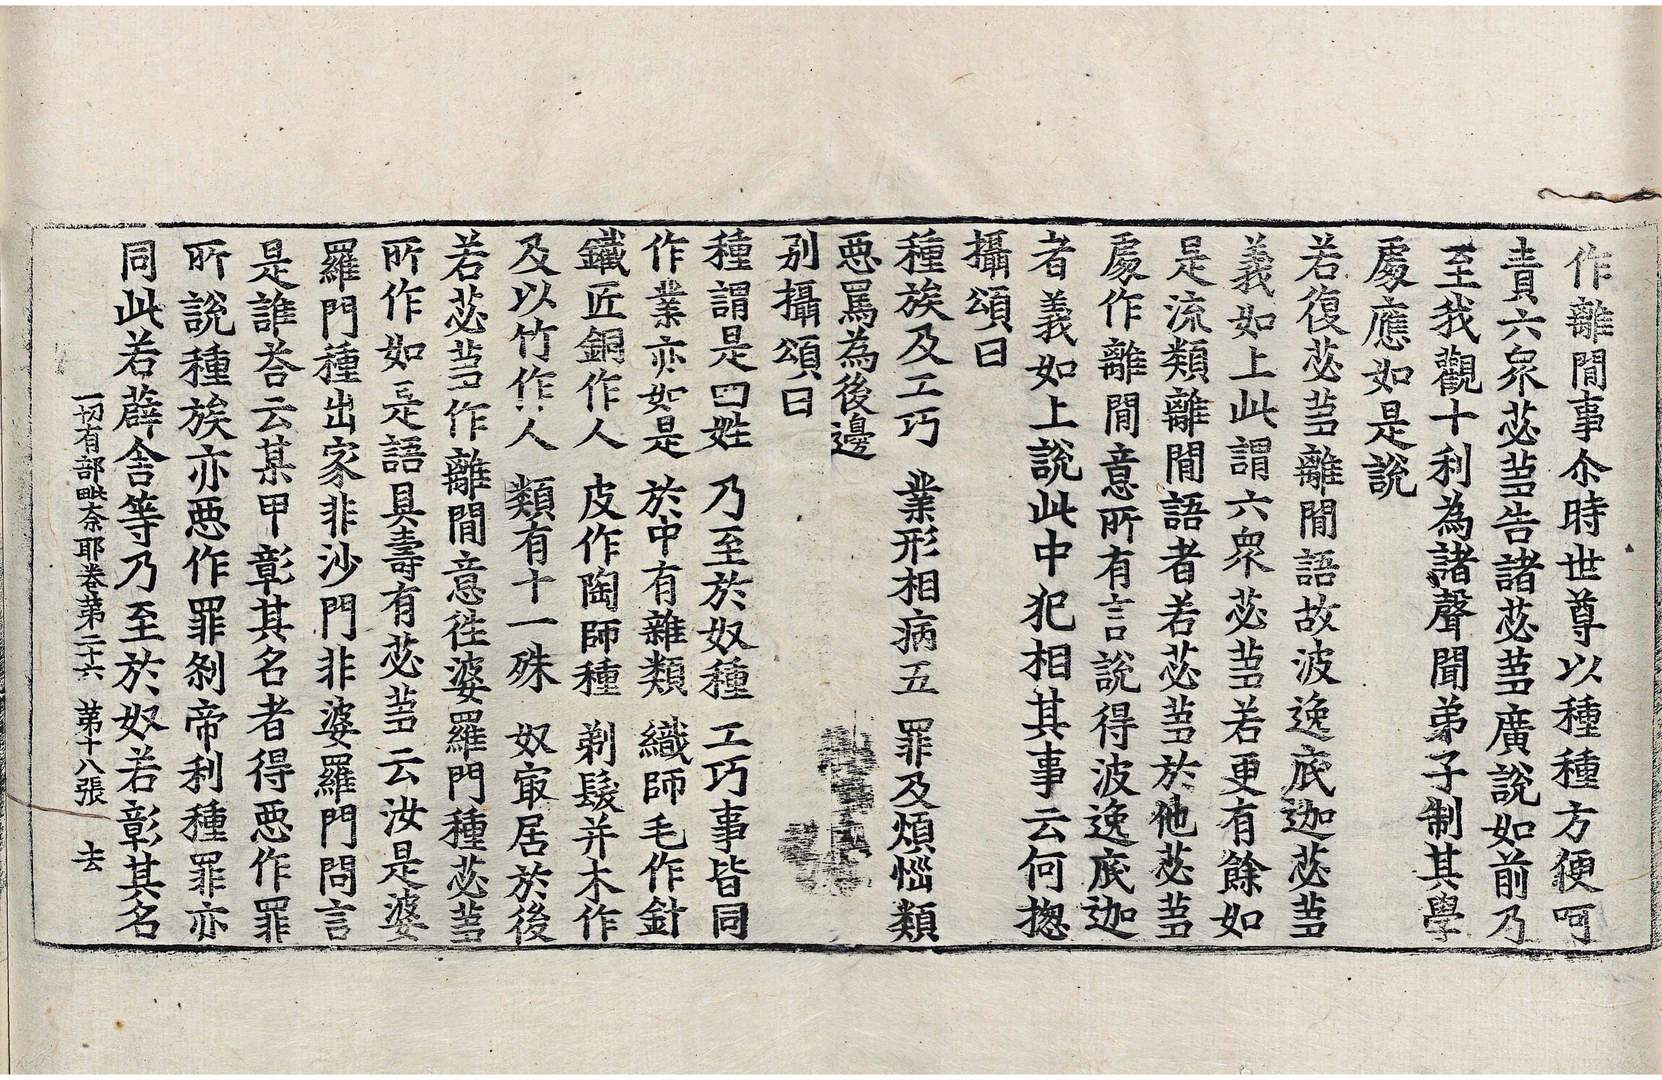 作離間事尒時世尊以種種方便呵
責六衆苾蒭告諸苾蒭廣說如前乃
至我觀十利為諸聲聞弟子制其學
處應如是說
若復苾蒭離間語故波逸底迦苾蒭
義如上此謂六衆苾蒭若更有餘如
是流類離間語者若苾蒭於他苾蒭
處作離間意所有言說得波逸底迦
者義如上說此中犯相其事云何揔
攝頌曰
種族及工巧 業形相病五 罪及煩惱類
惡罵為後邊
別攝頌曰
種謂是四姓 乃至於奴種 工巧事皆同
作業亦如是 於中有雜類 織師毛作針
鐵匠銅作人 皮作陶師種 剃髮并木作
及以竹作人 類有十一殊 奴㝡居於後
若苾蒭作離間意往婆羅門種苾蒭
所作如是語具壽有苾蒭云汝是婆
羅門種出家非沙門非婆羅門問言
是誰荅云某甲彰其名者得惡作罪
所說種族亦惡作罪剎帝利種罪亦
同此若薜舍等乃至於奴若彰其名
一切有部毗奈耶卷第二十六 第十八張 去